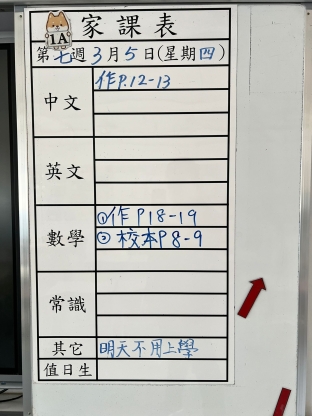 1A
家課表
第七週3月5日(星期四)
中文
作P.12-13
英文
數學
①作P18-19
②校本P8-9
常識
其它
明天不用上學
值日生